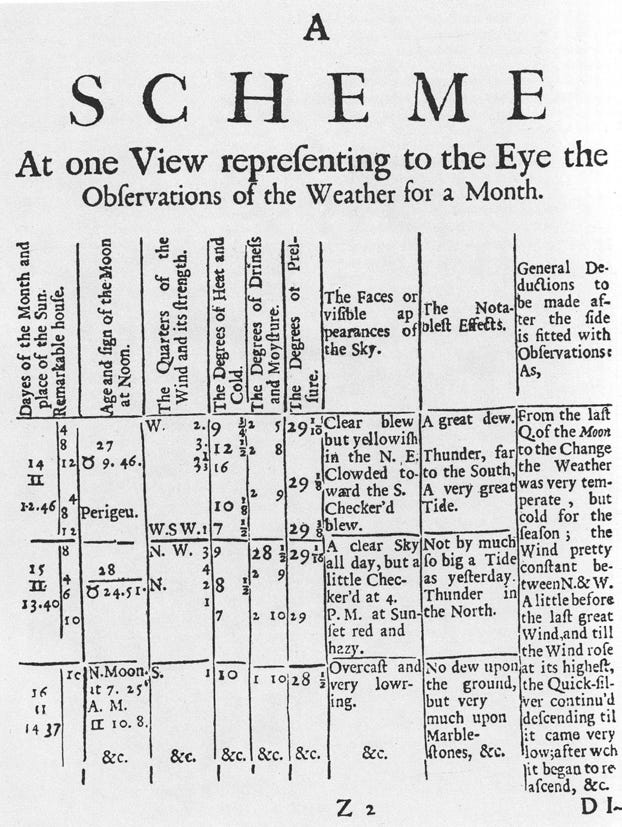 A
SCHEME
At one View repreſenting to the Eye the
Obſervations of the Weather for a Month.
Dayes of the Month and
place of the Sun.
Remarkable houſe.
Age and ſign of the Moon
at Noon.
The Quarters of the
Wind and its ſtrength.
The Degrees of Heat and
Cold.
The Degrees of Drineſs
and Moyſture.
The Degrees of Preſ-
ſure.
The Faces or
viſible ap
pearances of
the Sky.
The Nota-
bleſt Effects.
General De-
ductions to
be made af-
ter the ſide
is fitted with
Obſervations:
As,
14
♊
12.46
4
8
12
4
8
12
27
♉ 9. 46.
Perigeu.
W. 2.
3.
W.S W. 1
9 3/4
12 1/2
16
10 1/8
7 1/2
2 5
2 8
2 9
29 1/8
29 3/8
Clear blew
but yellowiſh
in the N. E.
Clowded to-
ward the S.
Checker'd
blew.
A great dew.
Thunder, far
to the South,
A very great
Tide.
15
♊
13.40
8
4
6
10
28
♉ 24.51.
N. W. 3
4
N. 2
1
9
8 1/2
7
28 1/2
2 9
2 10
29 1/16
29
A clear Sky
all day, but a
little Chec-
ker'd at 4.
P. M. at Sun-
ſet red and
hazy.
Not by much
ſo big a Tide
as yeſterday.
Thunder in
the North.
16
14 37
N.Moon.
at 7. 25
A. M.
♊ 10. 8.
&c.
S. 1
&c.
10
&c.
1 10
&c.
28 1/2
&c.
Overcaſt and
very lowr-
ing.
&c.
No dew upon
the ground,
but very
much upon
Marble-
ſtones, &c.
From the laſt
Q. of the Moon
to the Change
the Weather
was very tem-
perate, but
cold for the
ſeaſon; the
Wind pretty
conſtant be-
tween N. & W.
A little before
the laſt great
Wind, and till
the Wind roſe
at its higheſt,
the Quick-ſil-
ver continu'd
deſcending til
it came very
low; after wch
it began to re
aſcend, &c.
Z 2
D I-